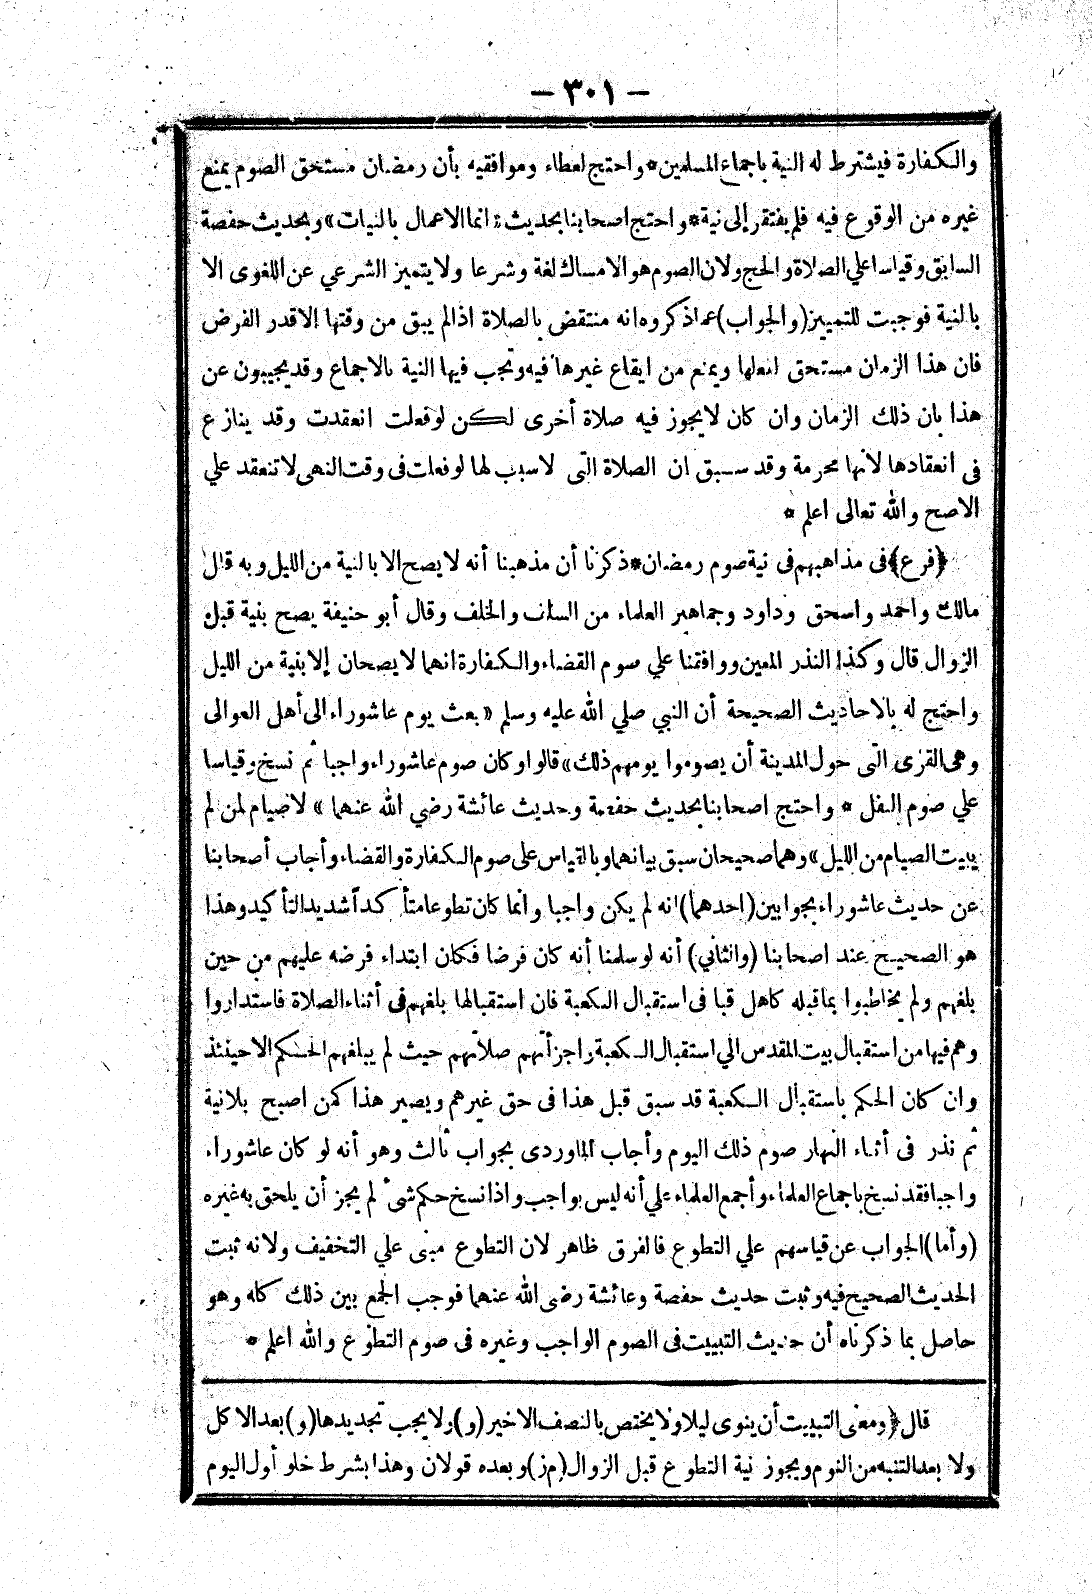 — ٣٠١ —
والكفارة فيشترط له النية باجماع المسلمين * واحتج لعطاء وموافقيه بأن رمضان مستحق الصوم يمنع
غيره من الوقوع فيه فلم يفتقر إلى نية * واحتج اصحابنا بحديث « انما الاعمال بالنيات » وبحديث حفصة
السابق وقياسا علي الصلاة والحج ولان الصوم هو الامساك لغة وشرعا ولا يتميز الشرعي عن اللغوى الا
بالنية فوجبت للتمييز (والجواب) عما ذكروه انه منتقض بالصلاة اذا لم يبق من وقتها الا قدر الفرض
فان هذا الزمان مستحق لفعلها ويمنع من ايقاع غيرها فيه وتجب فيها النية بالاجماع وقد يجيبون عن
هذا بان ذلك الزمان وان كان لا يجوز فيه صلاة أخرى لكن لو فعلت انعقدت وقد ينازع
فى انعقادها لأنها محرمة وقد سبق ان الصلاة التى لا سبب لها لو فعلت فى وقت النهى لا تنعقد علي
الاصح والله تعالى اعلم *
﴿فرع﴾ فى مذاهبهم فى نية صوم رمضان * ذكرنا أن مذهبنا أنه لا يصح الا بالنية من الليل وبه قال
مالك واحمد واسحق وداود وجماهير العلماء من السلف والخلف وقال أبو حنيفة يصح بنية قبل
الزوال قال وكذا النذر المعين ووافقنا علي صوم القضاء والكفارة انهما لا يصحان إلا بنية من الليل
واحتج له بالاحاديث الصحيحة أن النبي صلي الله عليه وسلم « بعث يوم عاشوراء الى أهل العوالى
وهى القرى التى حول المدينة أن يصوموا يومهم ذلك » قالوا وكان صوم عاشوراء واجبا ثم نسخ وقياسا
علي صوم النفل * واحتج اصحابنا بحديث حفصة وحديث عائشة رضي الله عنهما » لا صيام لمن لم
يبيت الصيام من الليل » وهما صحيحان سبق بيانهما وبالقياس على صوم الكفارة والقضاء وأجاب أصحابنا
عن حديث عاشوراء بجوابين (احدهما) انه لم يكن واجبا وانما كان تطوعا متأكدآ شديد التأكيد وهذا
هو الصحيح عند اصحابنا (والثاني) أنه لو سلمنا أنه كان فرضا فكان ابتداء فرضه عليهم من حين
بلغهم ولم يخاطبوا بما قبله كاهل قبا فى استقبال الكعبة فان استقبالها بلغهم فى أثناء الصلاة فاستداروا
وهم فيها من استقبال بيت المقدس الي استقبال الكعبة واجزأتهم صلاتهم حيث لم يبلغهم الحكم الا حينئذ
وان كان الحكم باستقبال الكعبة قد سبق قبل هذا فى حق غيرهم ويصير هذا كمن اصبح بلا نية
ثم نذر فى أثناء النهار صوم ذلك اليوم وأجاب الماوردى بجواب ثالث وهو أنه لو كان عاشوراء
واجبا فقد نسخ باجماع العلماء وأجمع العلماء علي أنه ليس بواجب واذا نسخ حكم شىء لم يجز أن يلحق به غيره
(وأما) الجواب عن قياسهم علي التطوع فالفرق ظاهر لان التطوع مبنى علي التخفيف ولانه ثبت
الحديث الصحيح فيه وثبت حديث حفصة وعائشة رضى الله عنهما فوجب الجمع بين ذلك كله وهو
حاصل بما ذكرناه أن حديث التبييت فى الصوم الواجب وغيره فى صوم التطوع والله اعلم *
قال ﴿ومعنى التبييت أن ينوى ليلا ولا يختص بالنصف الاخير (و) ولا يجب تجديدها (و) بعد الاكل
ولا بعد التنبه من النوم ويجوز نية التطوع قبل الزوال (م ز) وبعده قولان وهذا بشرط خلو أول اليوم